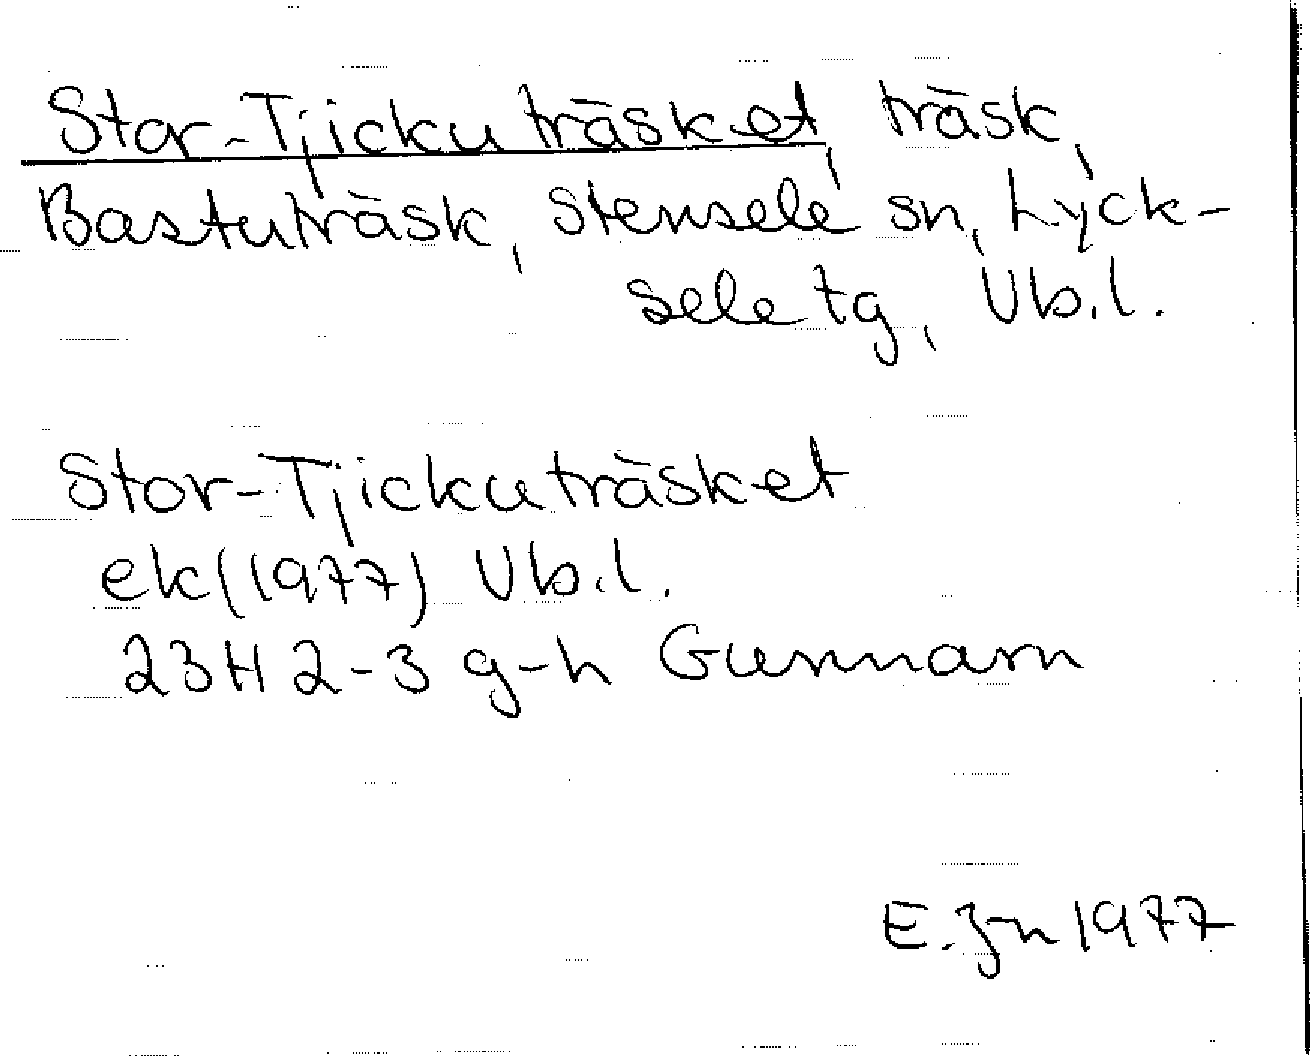 Stor-Tjickuträsket, träsk,
Bastuträsk, Stensele sn, Lyck-
sele tg, Vb.l.
Stor-Tjickuträsket
ek(1977) Vb.l.
23H 2-3 g-h Gunnarn
E. Jn 1977